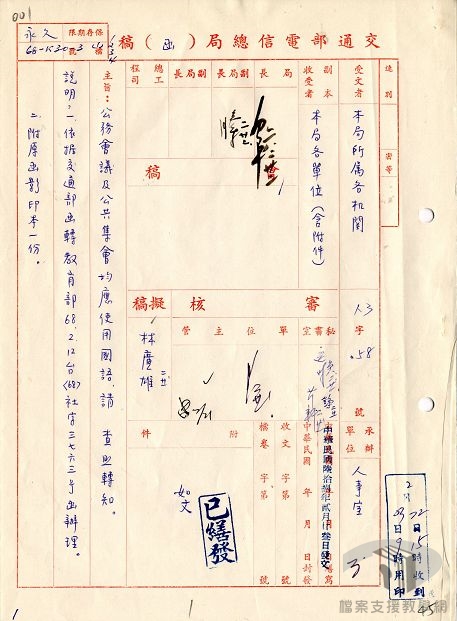 001
交通部電信總局(函)稿
保存期限
永久
號
68-1530-3
速別
密等
受文者
本局所屬各機關
副本收受者
本局各單位(含附件)
局長
副局長
副局長
總工程司
稿
人3字
.58
號
承辦單位
人事室
審核
擬稿
秘書室
單位主管
林廣雄
中華民國陸拾捌年貳月廿叁日發文
中華民國 年 月 日封發
收文 字第 號
檔卷 字第 號
附件
如文
已繕發
2月22日15時收到
23日9時用印
主旨:公務會議及公共集會均應使用國語,請 查照轉知。
說明:一、依據交通部函轉教育部68.2.12台(68)社字三七六三号函辦理。
二、附原函影印本一份。
檔案支援教學網
45
1
1